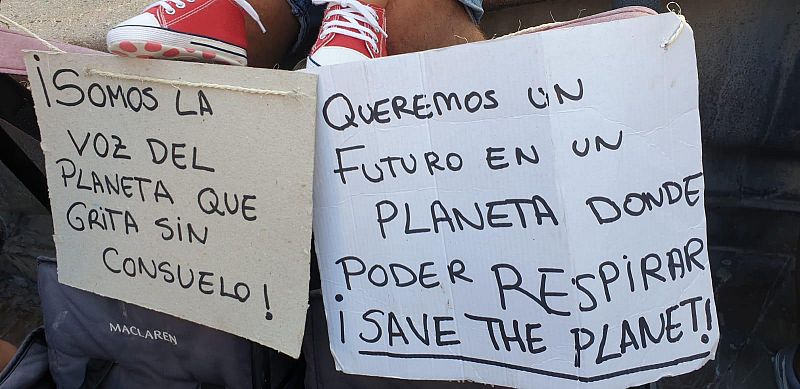 ¡SOMOS LA
VOZ DEL
PLANETA QUE
GRITA SIN
CONSUELO!
QUEREMOS UN
FUTURO EN UN
PLANETA DONDE
PODER RESPIRAR
¡SAVE THE PLANET!
MACLAREN